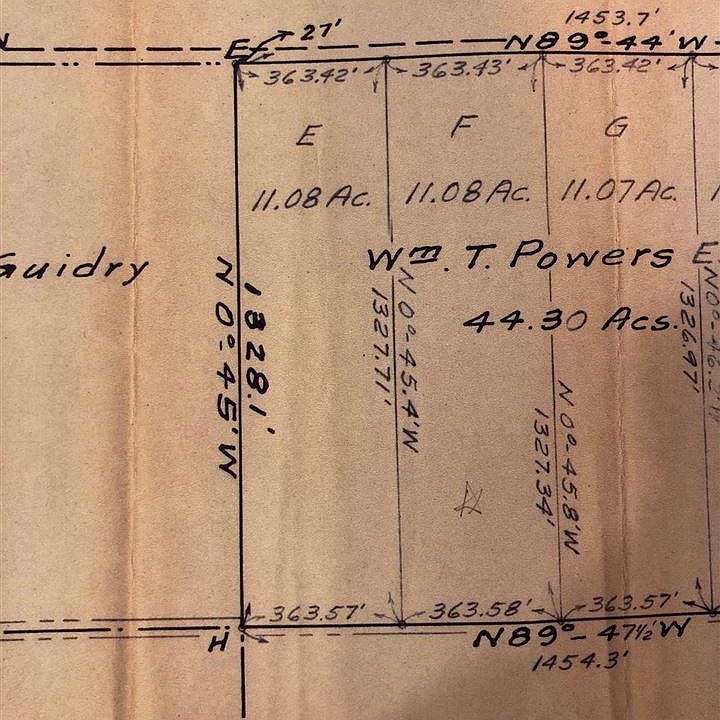 1453.7'
E 27' N89°-44'W
363.42' 363.43' 363.42'
E F G
11.08 Ac. 11.08 Ac. 11.07 Ac.
Guidry
Wm. T. Powers E
44.30 Acs.
N 0°-45'W
1328.1'
1327.71'
N 0°-45.4'W
1327.34'
N 0°-45.8'W
1326.97'
363.57' 363.58' 363.57'
H N89°-47½'W
1454.3'